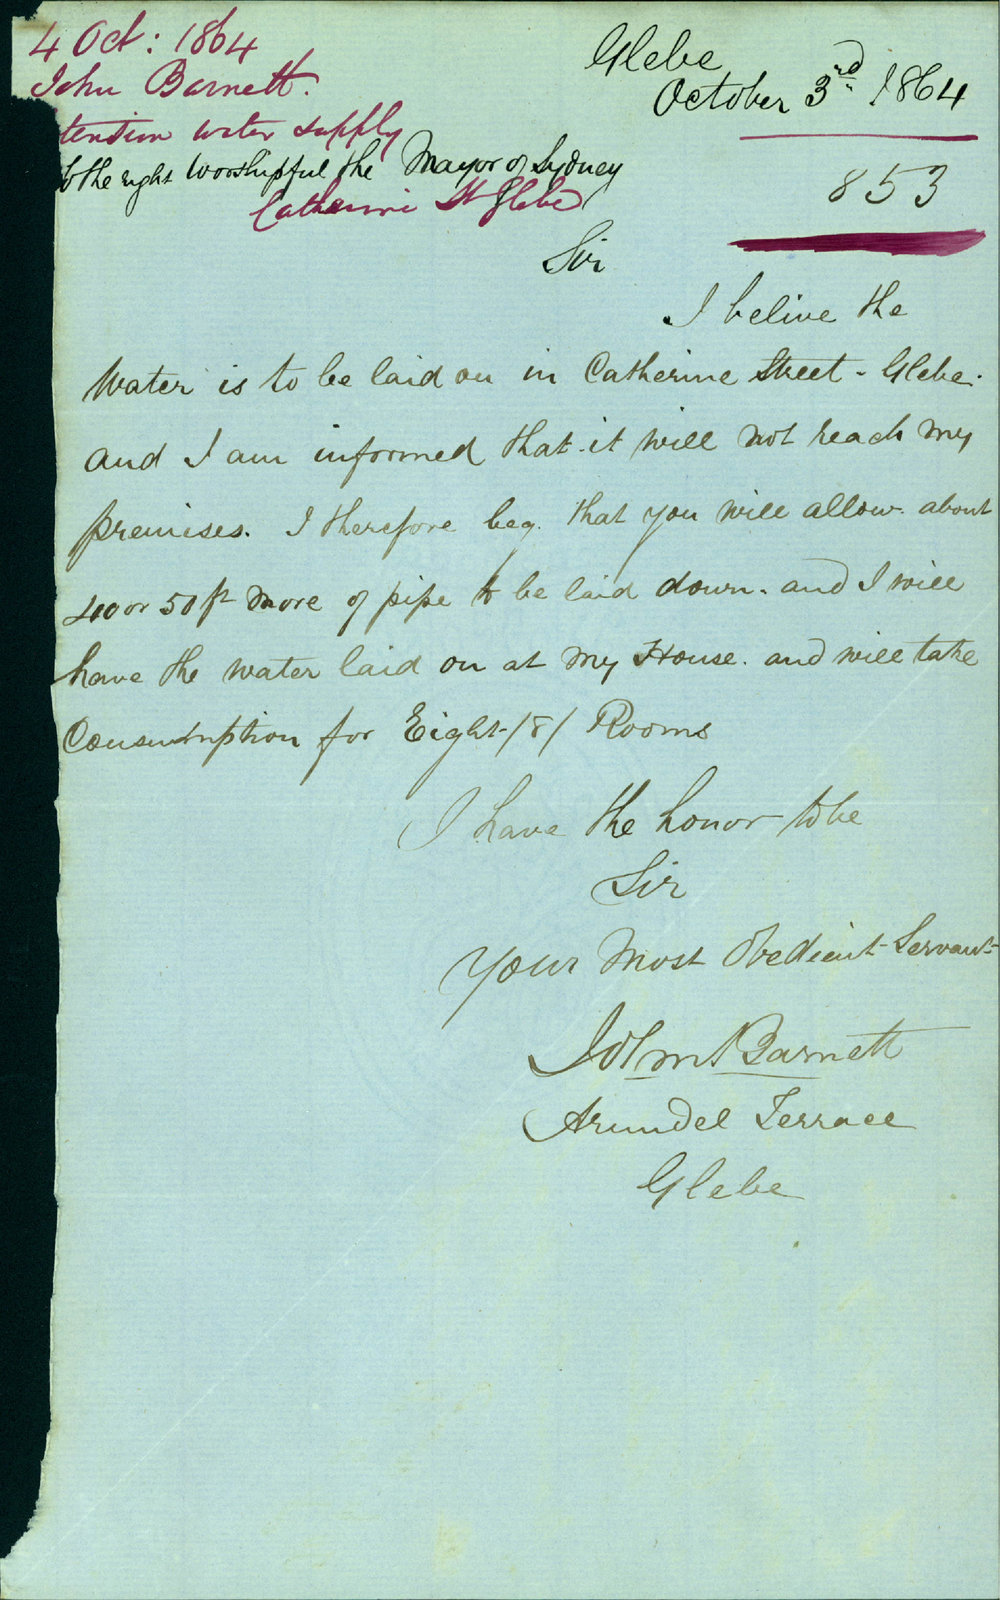 4 Oct: 1864
John Barnett.
tension water supply
Glebe
October 3rd 1864
To the right Worshipful the Mayor of Sydney
Catherine St Glebe
853
Sir
I belive the
Water is to be laid on in Catherine Street - Glebe.
and I am informed that it will not reach my
premises. I therefore beg. that you will allow about
40 or 50 ft more of pipe to be laid down. and I will
have the water laid on at my House. and will take
Consumption for Eight /8/ Rooms
I have the honor to be
Sir
Your Most Obedient Servant
John Barnett
Arundel Terrace
Glebe